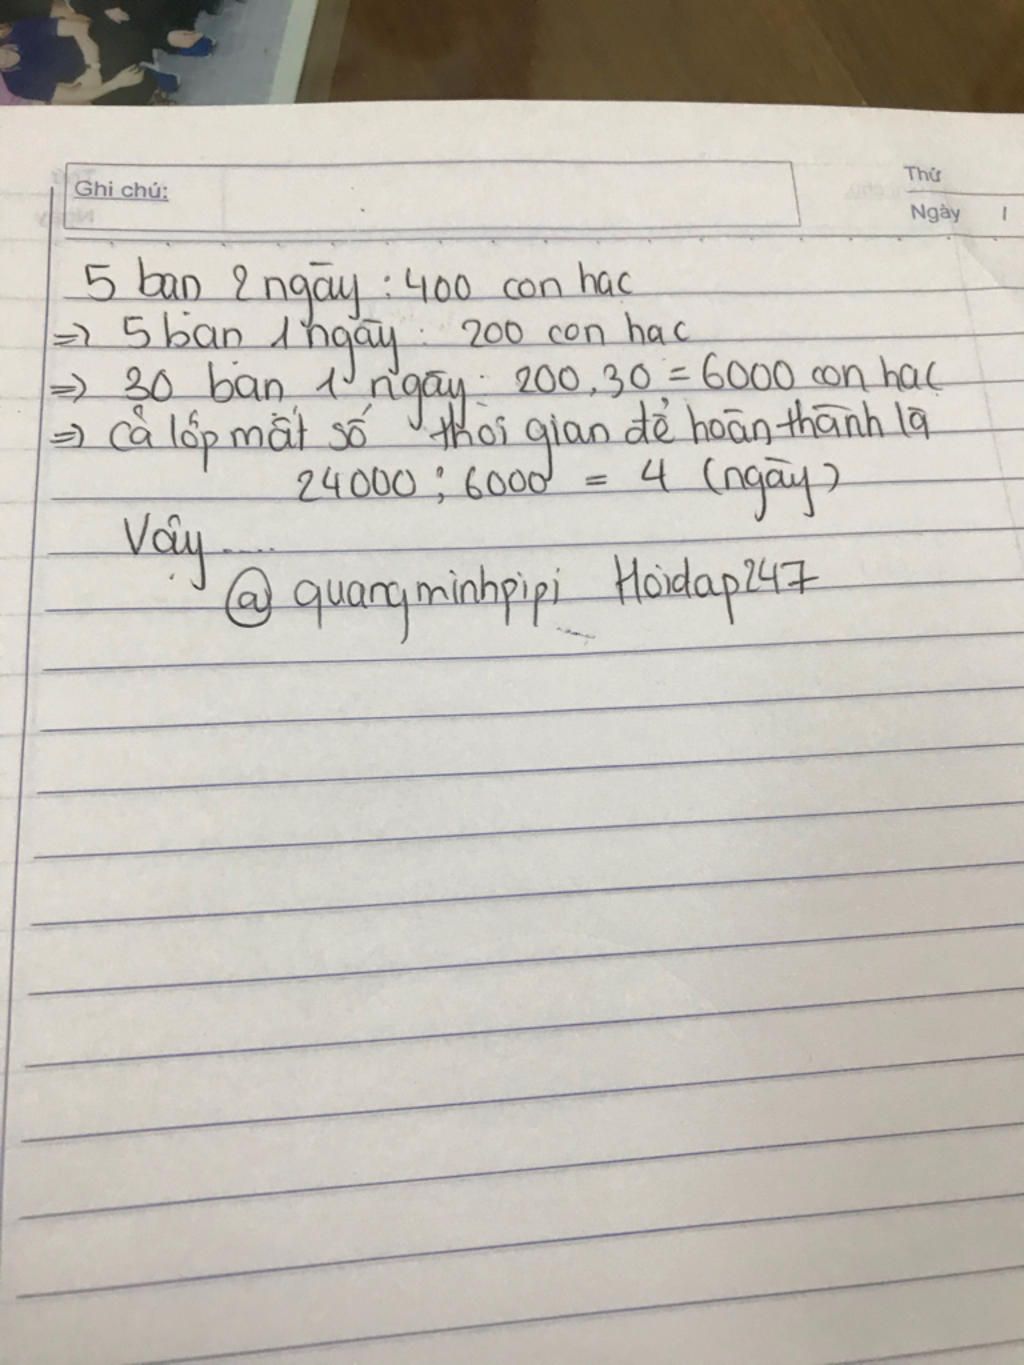 Ghi chú:
Thứ
Ngày /
5 bạn 2 ngày : 400 con hạc
=> 5 bạn 1 ngày : 200 con hạc
=> 30 bạn 1 ngày : 200.30 = 6000 con hạc
=> Cả lớp mất số thời gian để hoàn thành là
24000 : 6000 = 4 (ngày)
Vậy .....
@ quangminhpipi Hoidap247